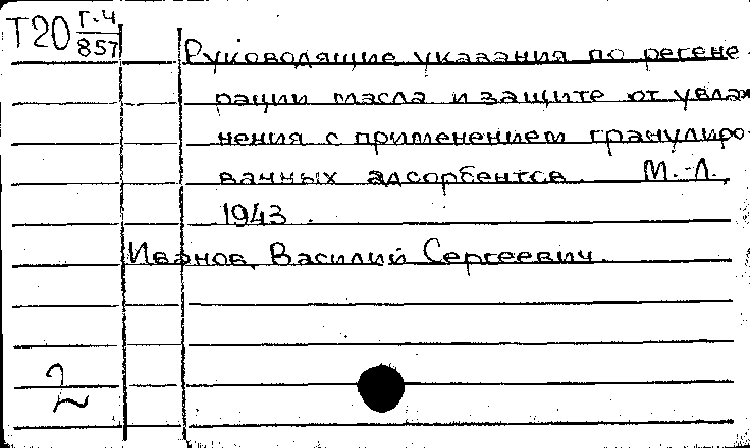 Т20 Г-4
857
Руководящие указания по регене-
рации масла и защите от увлаж
нения с применением гранулиро-
ванных адсорбентов. М.-Л.,
1943.
Иванов, Василий Сергеевич.
2